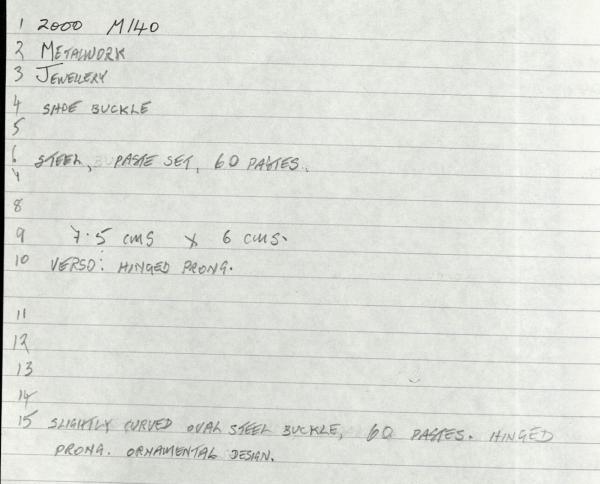 1 2000 M140
2 METALWORK
3 JEWELLERY
4 SHOE BUCKLE
5
6 STEEL, PASTE SET, 60 PASTES.
7
8
9 7.5 CMS X 6 CMS.
10 VERSO: HINGED PRONG.
11
12
13
14
15 SLIGHTLY CURVED OVAL STEEL BUCKLE, 60 PASTES. HINGED
PRONG. ORNAMENTAL DESIGN.